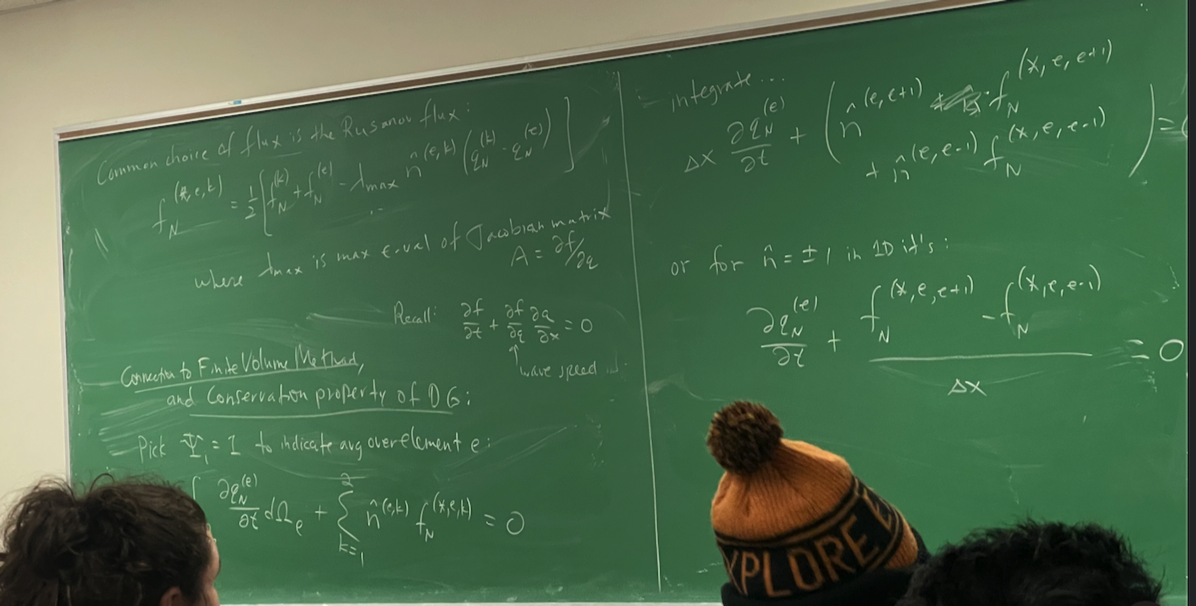 Common choice of flux is the Rusanov flux:
f_N^(*,e,k) = 1/2 [ f_N^(k) + f_N^(e) - λmax n̂^(e,k) ( q_N^(k) - q_N^(e) ) ]
where λmax is max e-val of Jacobian matrix
A = ∂f/∂q
Recall: ∂f/∂t + ∂f/∂q ∂q/∂x = 0
↑
wave speed
Connection to Finite Volume Method,
and Conservation property of DG:
Pick Ψ_i = 1 to indicate avg over element e:
∫ ∂q_N^(e)/∂t dΩ_e + Σ_{k=1}^{2} n̂^(e,k) f_N^(*,e,k) = 0
- integrate...
Δx ∂q_N^(e)/∂t + ( n̂^(e,e+1) f_N^(*,e,e+1)
+ n̂^(e,e-1) f_N^(*,e,e-1) ) =
or for n̂ = ±1 in 1D it's:
∂q_N^(e)/∂t + ( f_N^(*,e,e+1) - f_N^(*,e,e-1) ) / Δx = 0
XPLORE E